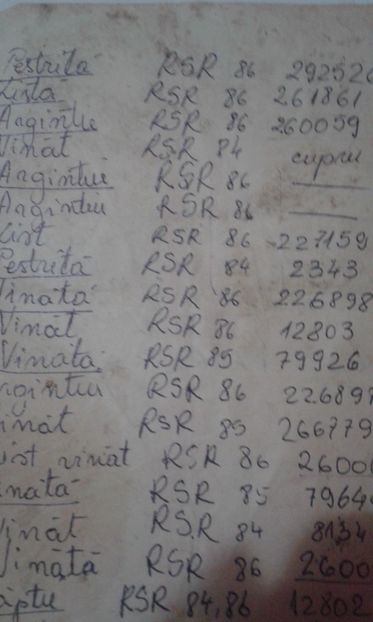 Pestrită RSR 86 292526
Listă RSR 86 261861
Argintiu RSR 86 260059
Vînăt RSR 84 cupru
Argintiu RSR 86
Argintiu RSR 86
List RSR 86 227159
Pestrită RSR 84 2343
Vînătă RSR 86 226898
Vînăt RSR 86 12803
Vînătă RSR 85 79926
rgintiu RSR 86 226897
înăt RSR 85 266779
ist vînăt RSR 86 2600
înată RSR 85 7964
Vînăt RSR 84 8134
Vînătă RSR 86 2600
RSR 84,86 12802